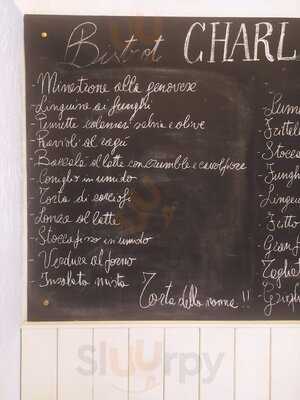 Bistrot CHARL
- Minestrone alla genovese
- Linguine ai funghi
- salvia e olive
- Ravioli al ragù
- al latte con crumble e cavolfiore
- Coniglio in umido
- Torta di carciofi
- Lonza al latte
- Stoccafisso in umido
- Verdure al forno
- Insalata mista
Torta della nonna !!
- Lume
- Frittell
- Stocca
- Fungh
- Lingui
- Fritto
- Gianf
- Tagliat
Sluurpy